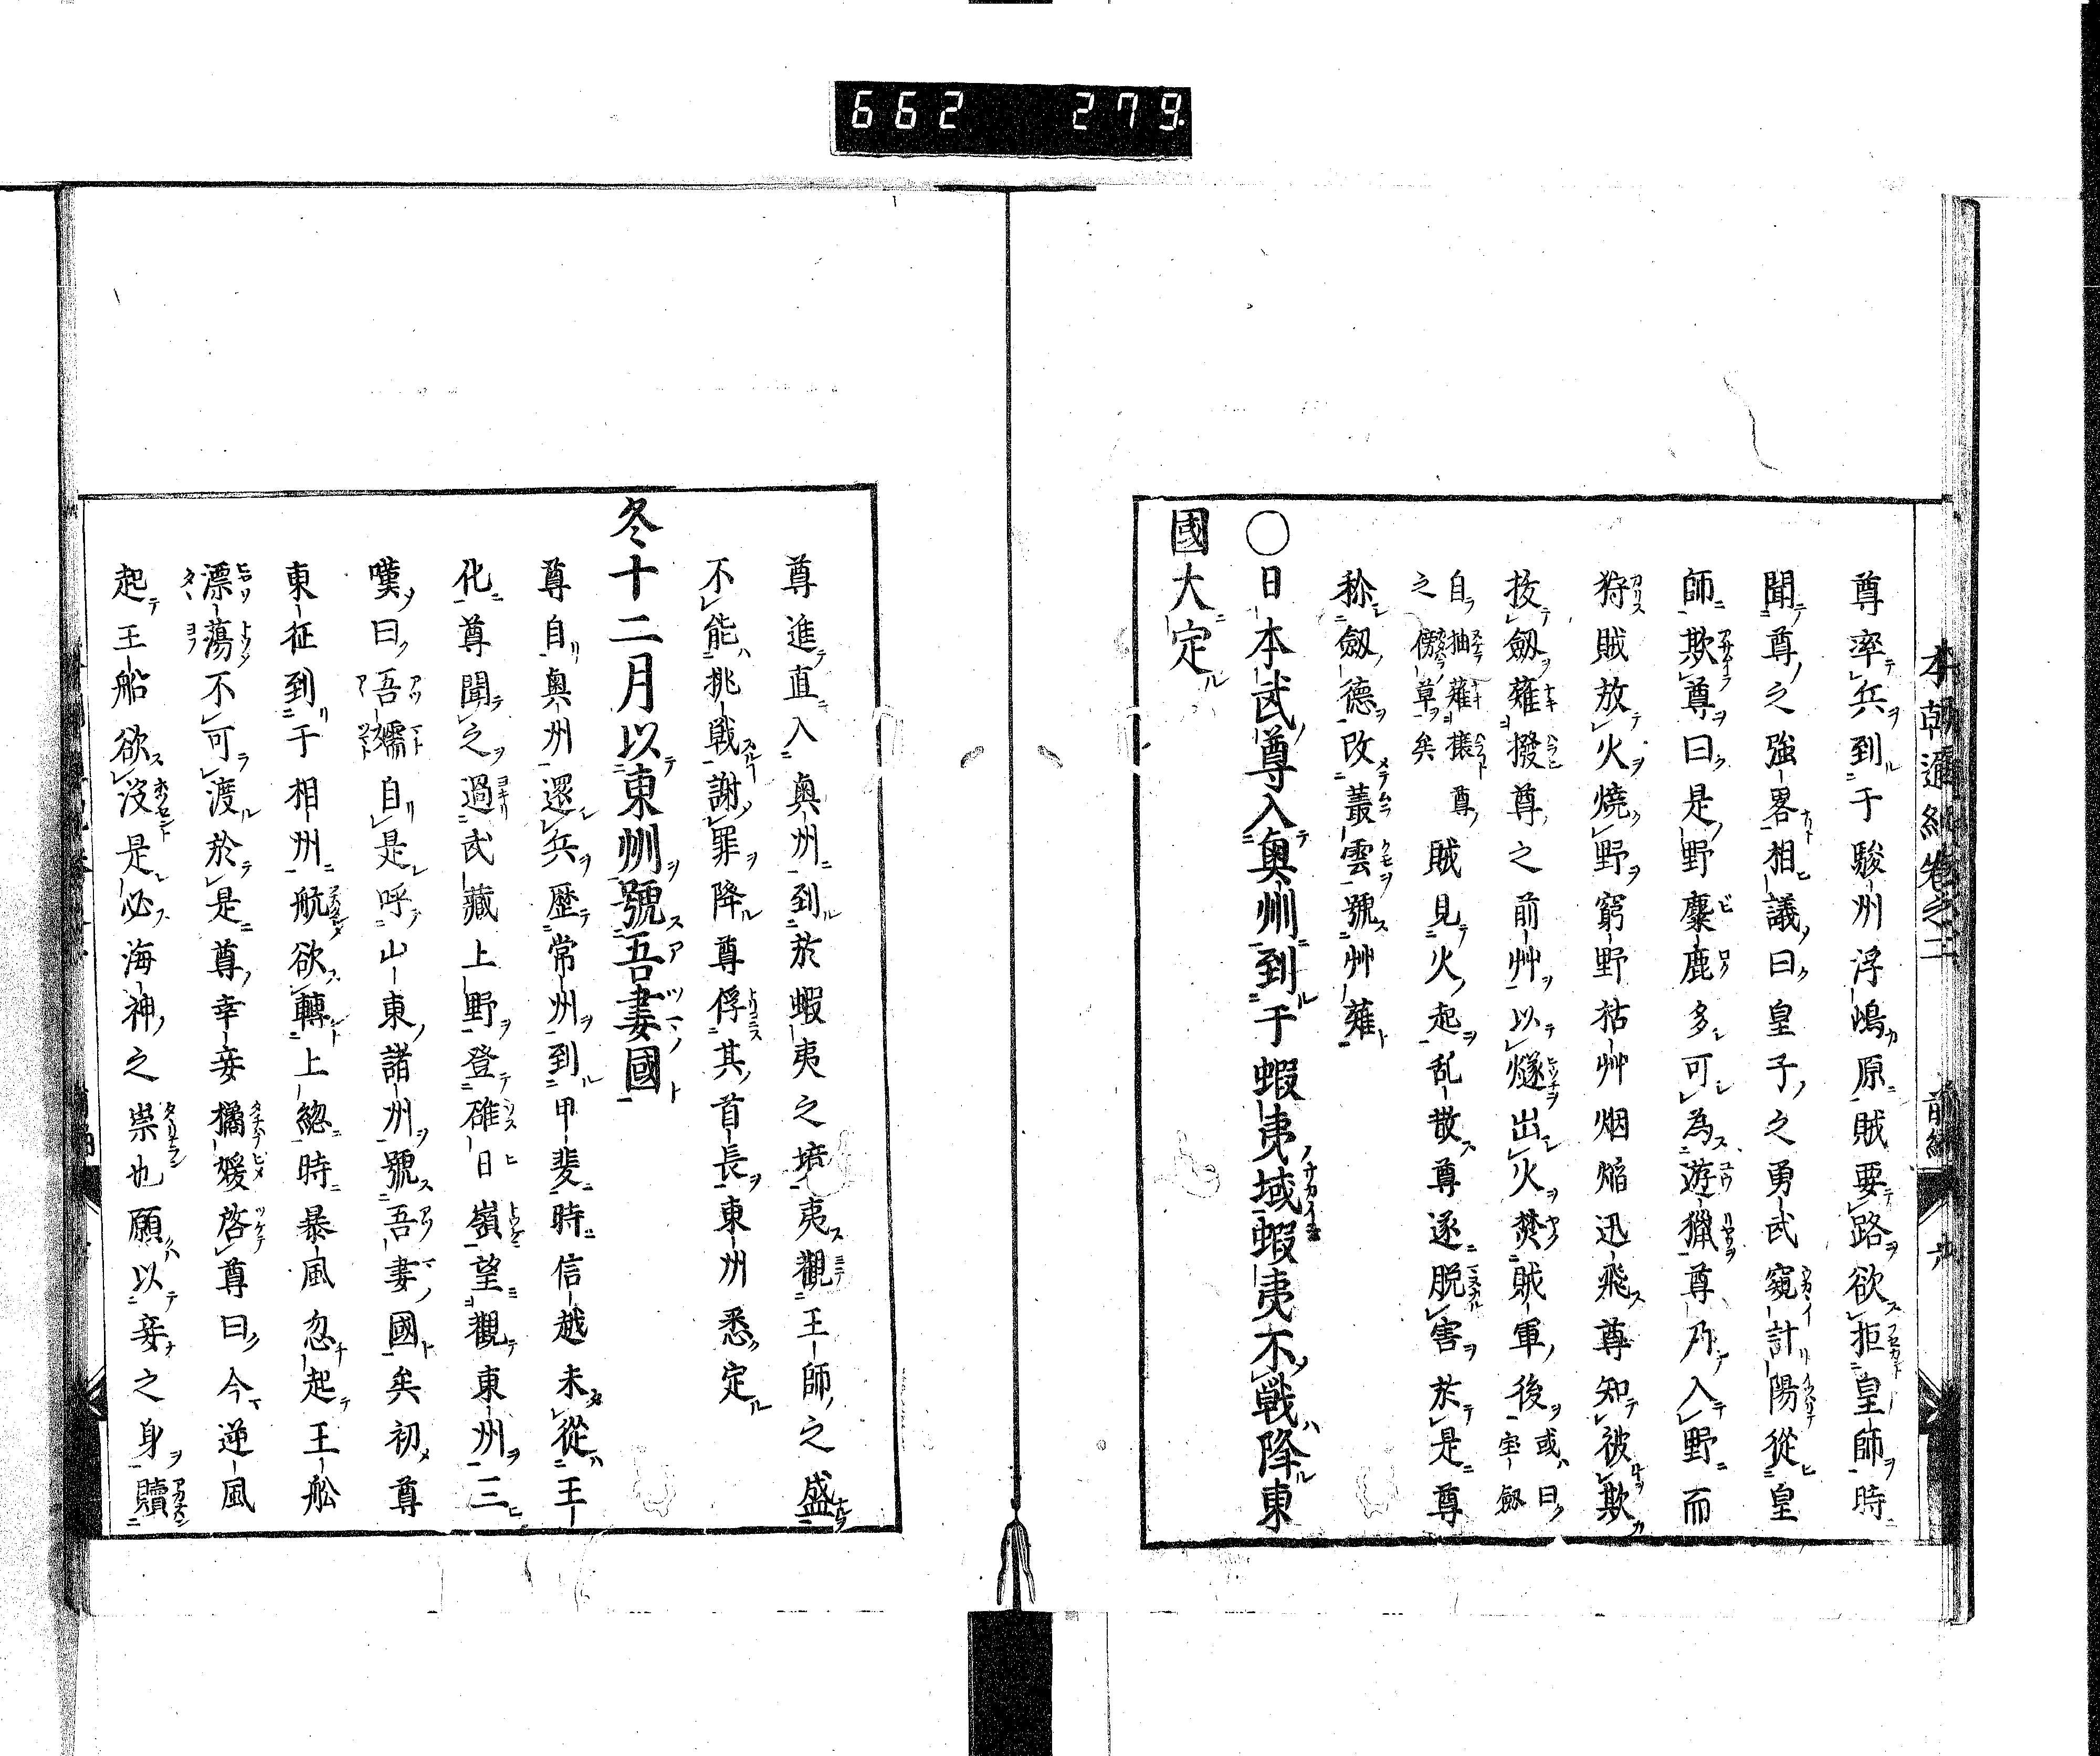 662 279
本朝通紀卷之二 前編 六
尊率兵到于駿州浮嶋原賊要路欲拒皇師時
聞尊之強畧相議曰皇子之勇武窺計陽從皇
師欺尊曰是野麋鹿多可為遊獵尊乃入野而
狩賊放火燒野窮野枯艸烟焔迅飛尊知被欺
拔劔薙撥尊之前艸以燧出火焚賊軍後或曰宝劔
自抽薙攘尊之傍草矣賊見火起乱散尊遂脱害於是尊
称劔德改叢雲號艸薙
〇日本武尊入奥州到于蝦夷域蝦夷不戦降東
國大定
尊進直入奥州到於蝦夷之境夷觀王師之盛
不能挑戦謝罪降尊俘其首長東州悉定
冬十二月以東州號吾妻國
尊自奥州還兵歴常州到甲斐時信越未從王
化尊聞之過武藏上野登碓日嶺望觀東州三
嘆曰吾孀自是呼山東諸州號吾妻國矣初尊
東征到于相州航欲轉上総時暴風忽起王舩
漂蕩不可渡於是尊幸妾橘媛啓尊曰今逆風
起王船欲没是必海神之祟也願以妾之身贖